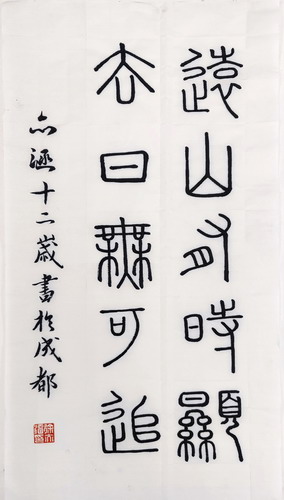 遠山有時顯
去日無可追
亦涵十二歲書於成都